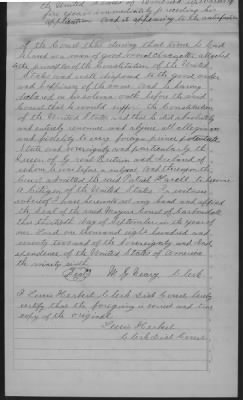 the United States of America
five years immediately preceding his
application and it appearing to the satisfaction
of the Court that during that time he had
behaved as a man of good moral character attached
to the principles of the Constitution of the United
States and well disposed to the good order
and happiness of the same and he having
declared on his solemn oath before the said
Court that he would support the Constitution
of the United States and that he did absolutely
and entirely renounce and abjure all allegiance
and fidelity to every foreign prince potentate
State and Sovereignty and particularly the
Queen of Great Britain and Ireland of
whom he was before a subject And thereupon the
Court admitted the said Patrick to become
a Citizen of the United States In testimony
whereof I have hereunto set my hand and affixed
the Seal of the said Court of
this day of September in the year of
our Lord one thousand eight hundred and
seventy two and of the Sovereignty and Ind
ependence of the United States of America
the ninety sixth
Clerk
I Louis Herbert Clerk Dist Court hereby
certify that the foregoing is correct and true
copy of the original
Louis Herbert
Clerk Dist Court